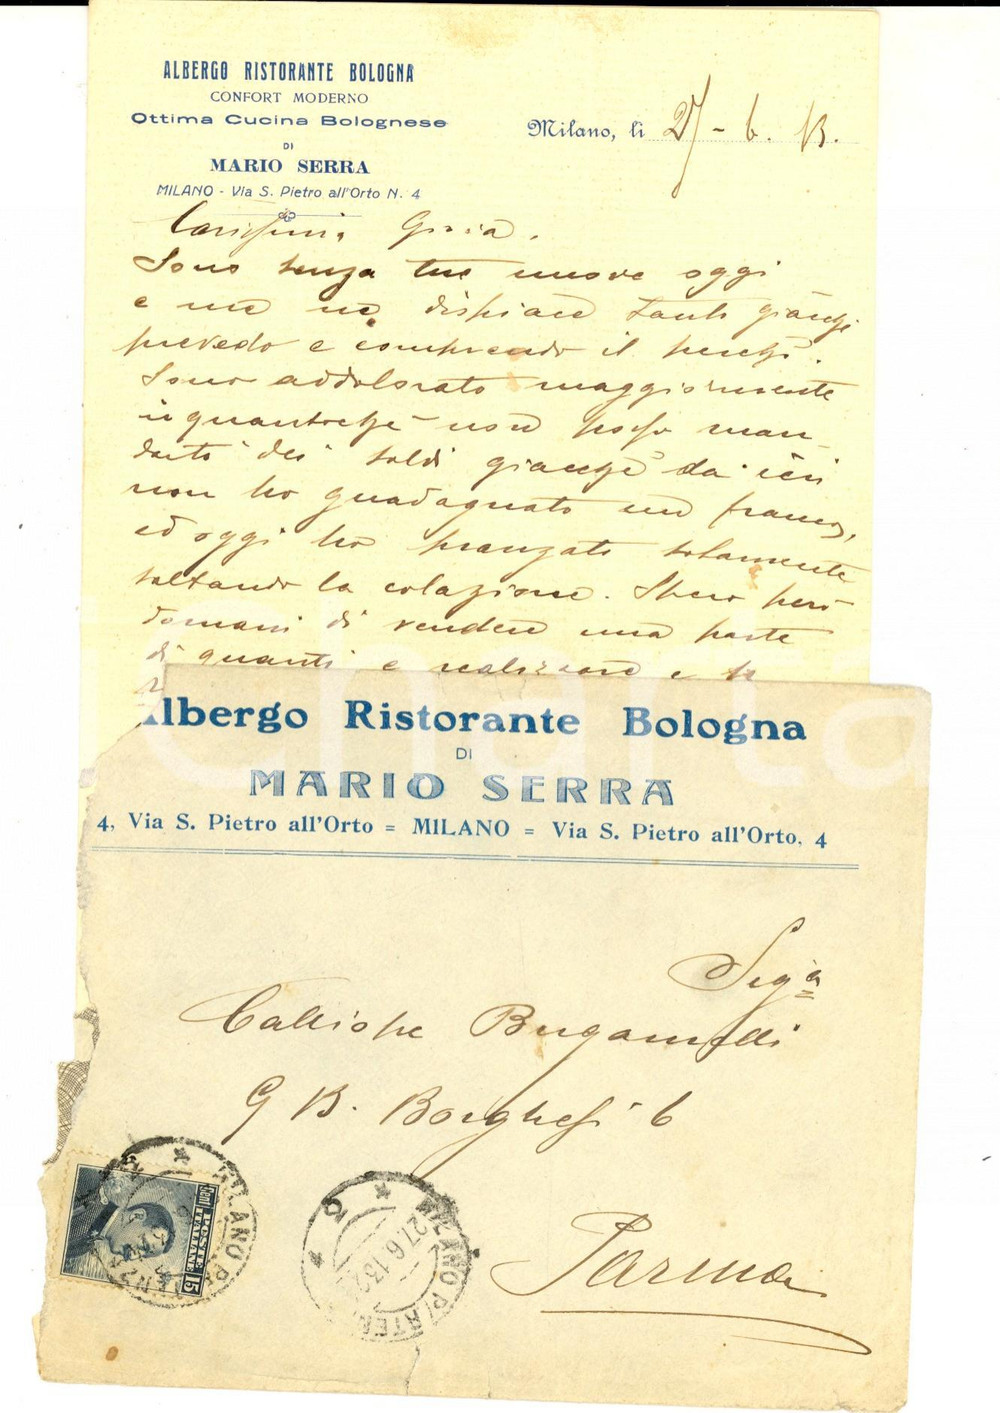 ALBERGO RISTORANTE BOLOGNA
CONFORT MODERNO
Ottima Cucina Bolognese
DI
MARIO SERRA
MILANO - Via S. Pietro all'Orto N. 4
Milano, li 27-6. 13.
Carissima
Sono senza tue nuove oggi
e me ne dispiace tanto giacchè
prevedo e comprendo il perchè.
Sono addolorato maggiormente
inquantochè non posso man-
darti dei soldi giacchè da ieri
non ho guadagnato un franco,
ed oggi ho pranzato solamente
saltando la colazione. Spero però
domani di vendere una parte
di guanti e realizzare e
Albergo Ristorante Bologna
DI
MARIO SERRA
4, Via S. Pietro all'Orto = MILANO = Via S. Pietro all'Orto, 4
Sigª
Calliope Bugamelli
G B. Borghesi 6
Parma
POSTE ITALIANE
Cent 15
MILANO
MILANO
27.6.13
charta